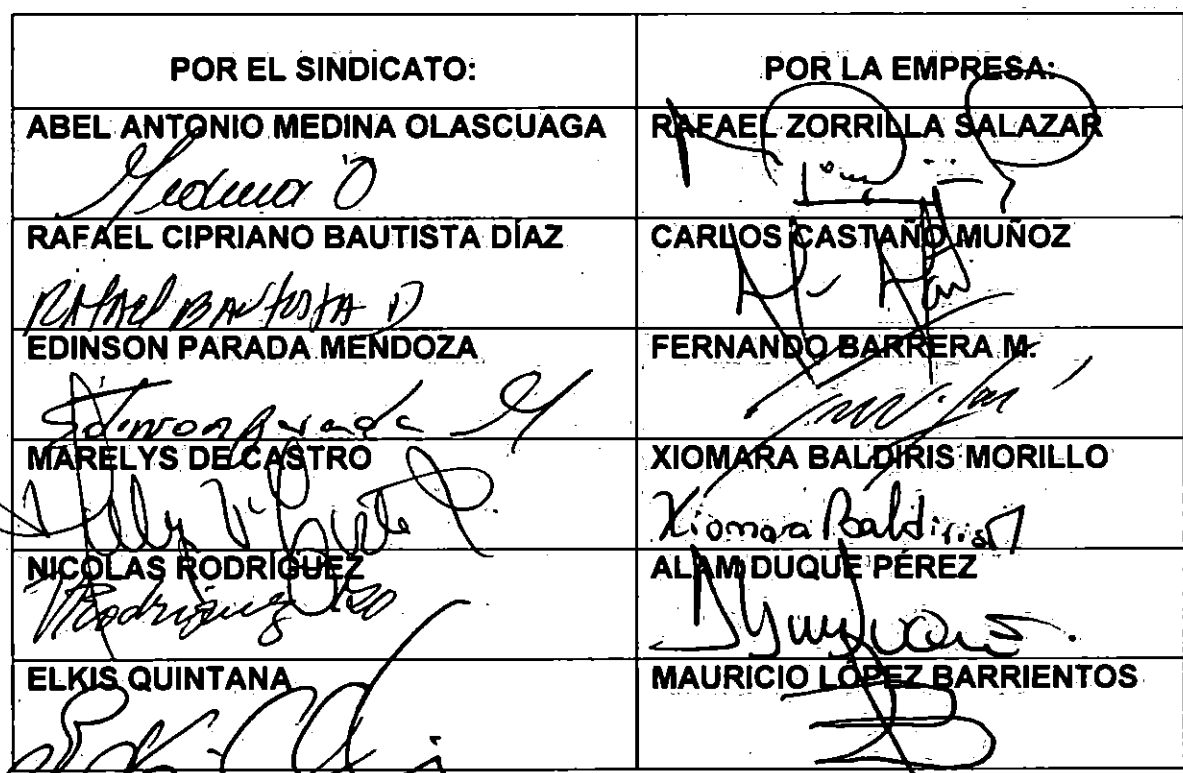 POR EL SINDICATO:
POR LA EMPRESA:
ABEL ANTONIO MEDINA OLASCUAGA
RAFAEL ZORRILLA SALAZAR
Medina O
RAFAEL CIPRIANO BAUTISTA DÍAZ
CARLOS CASTAÑO MUÑOZ
RAFAEL BAUTISTA D
EDINSON PARADA MENDOZA
FERNANDO BARRERA M.
Edinson Parada M
MARELYS DE CASTRO
XIOMARA BALDIRIS MORILLO
Xiomara Baldiris M
NICOLAS RODRÍGUEZ
ALAM DUQUE PÉREZ
Rodriguez
ELKIS QUINTANA
MAURICIO LÓPEZ BARRIENTOS